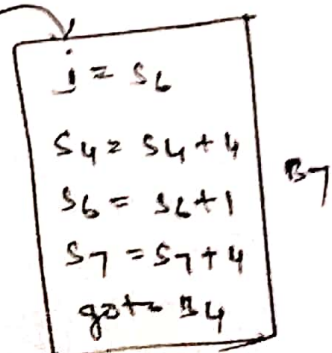 j = s6
s4 = s4 + 4
s6 = s6 + 1
s7 = s7 + 4
goto B4
B7